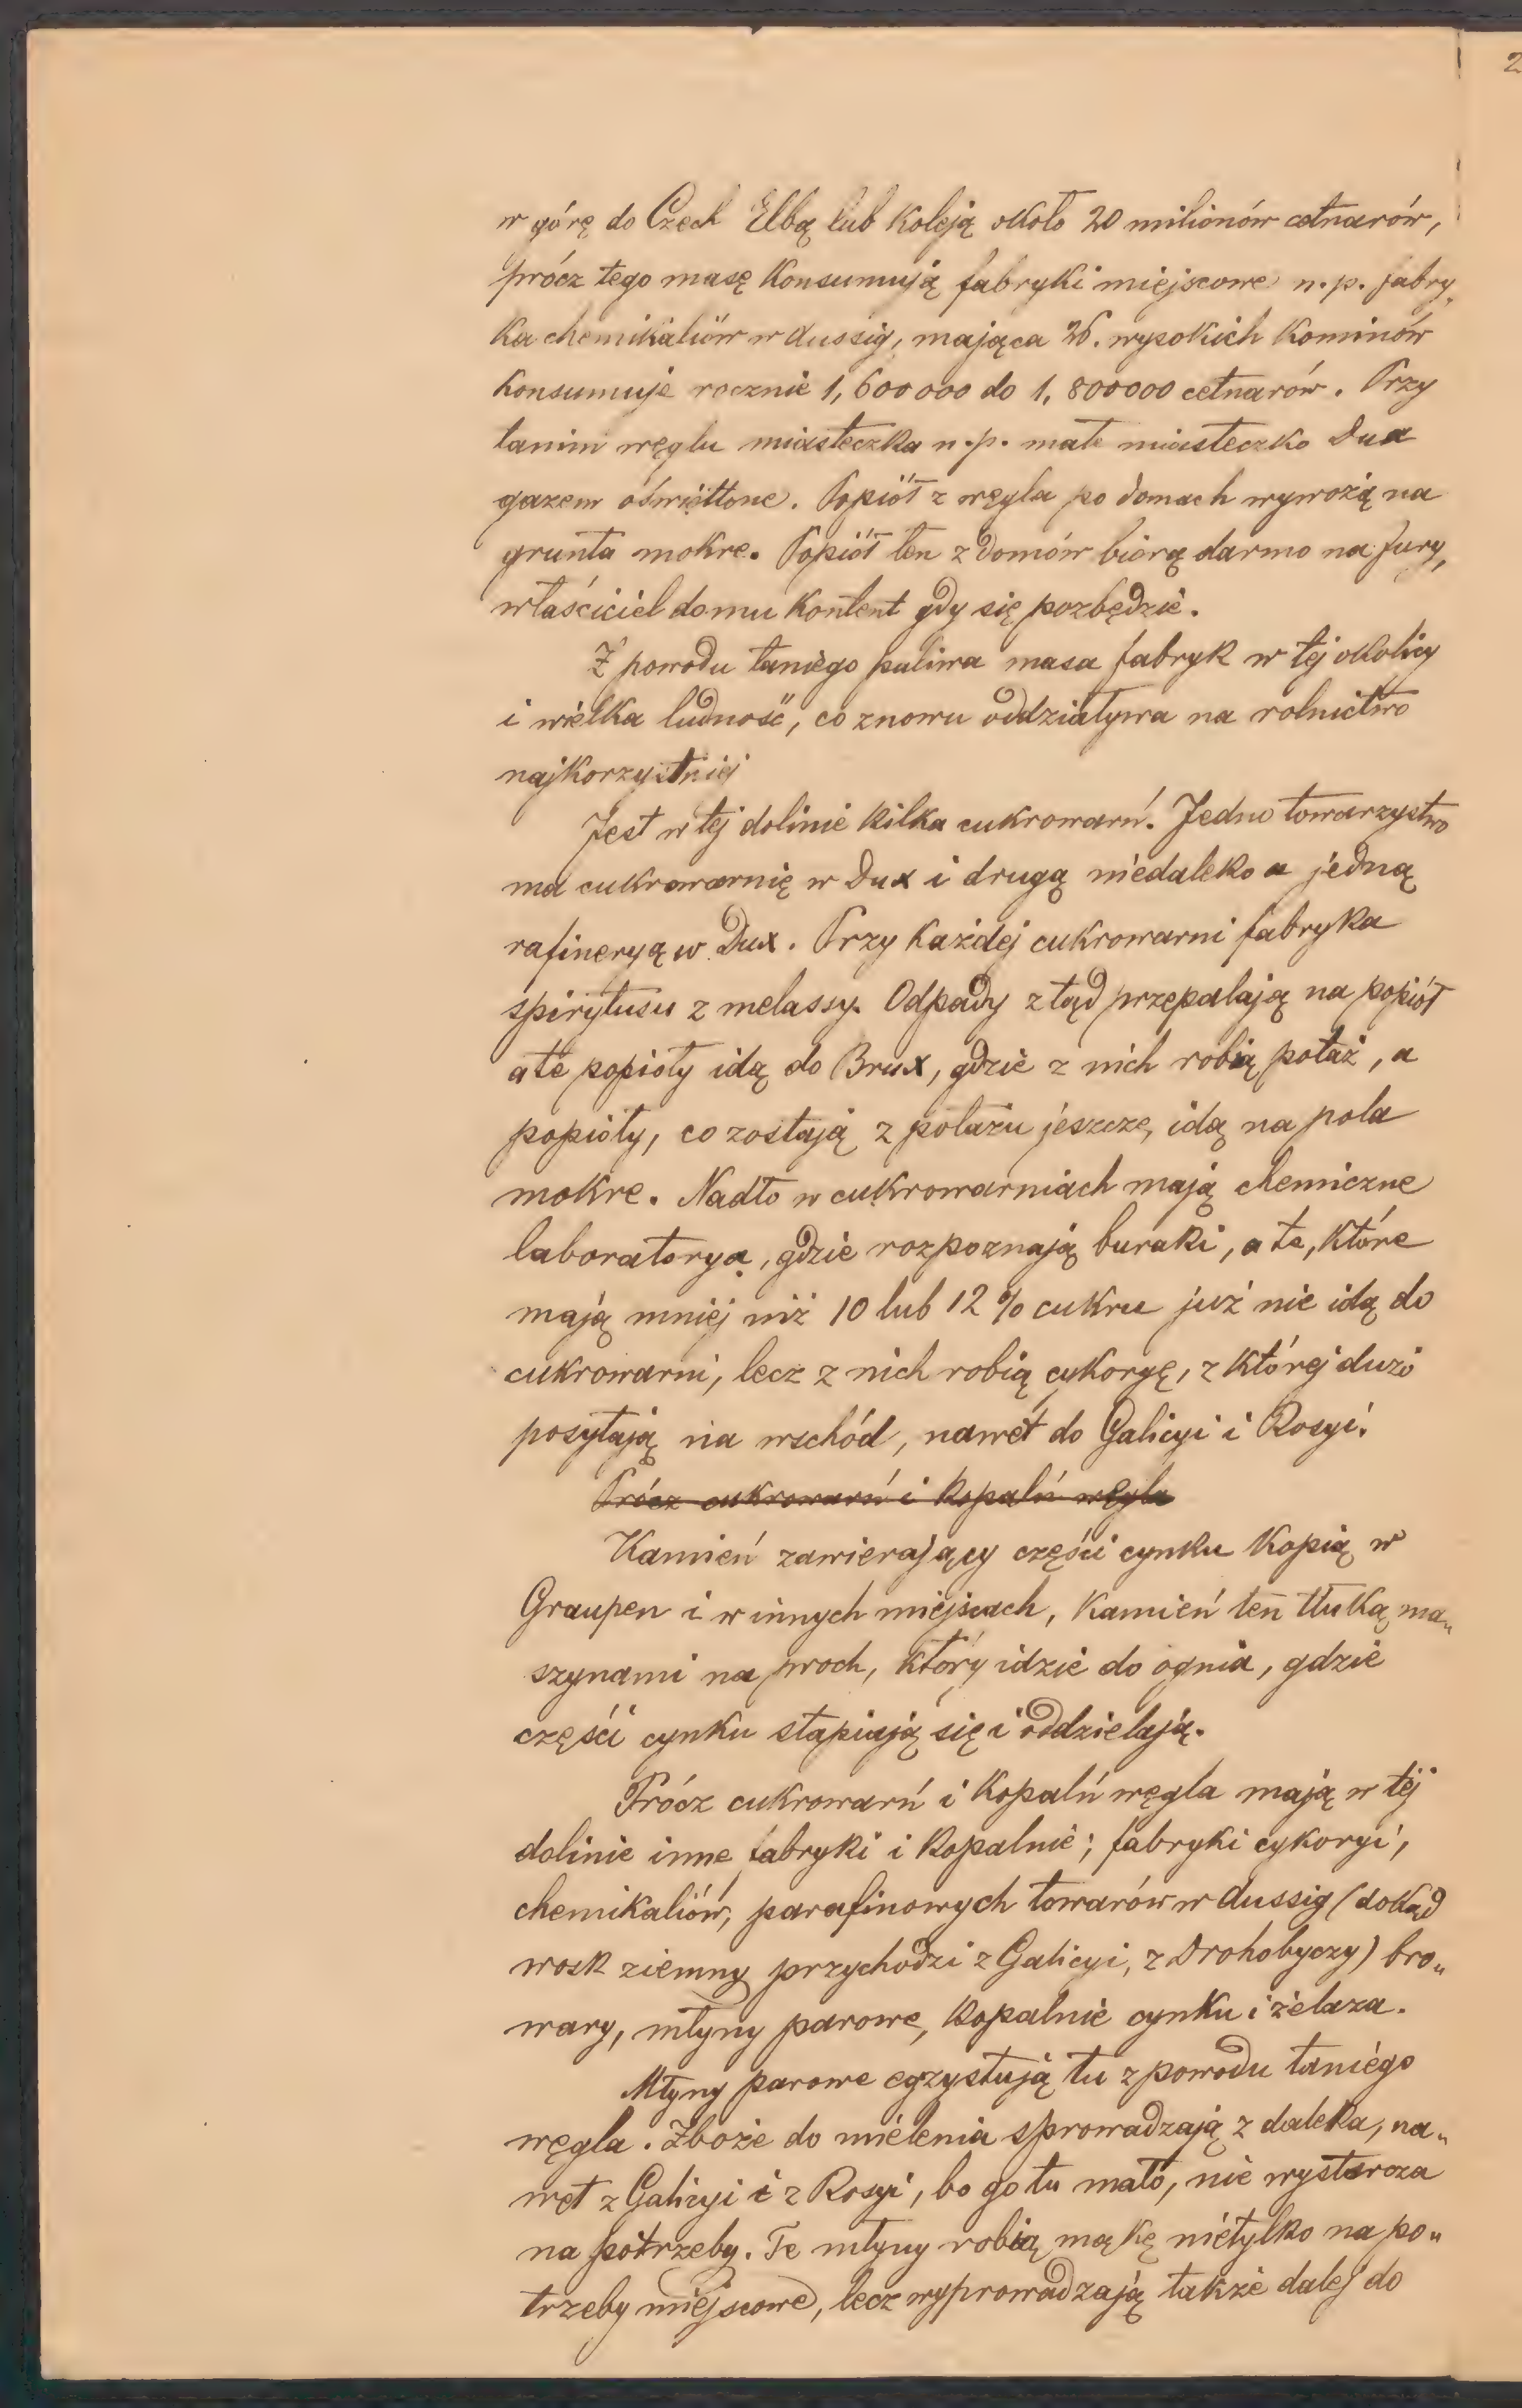 w górę do Czech Elbą lub koleją około 20 milionów cetnarów,
prócz tego masę konsumują fabryki miejscowe n. p. fabry„
ka chemikaliów w Aussig, mająca 26. wysokich kominów
konsumuje rocznie 1,600000 do 1,800000 cetnarów. Przy
tanim węglu miasteczka n. p. małe miasteczko Dux
gazem oświetlone. Popiół z węgla po domach wywożą na
grunta mokre. Popiół ten z domów biorą darmo na fury,
właściciel domu kontent gdy się pozbędzie.
Z powodu taniego paliwa masa fabryk w tej okolicy
i wielka ludność, co znowu oddziaływa na rolnictwo
najkorzystniej
Jest w tej dolinie kilka cukrowarń. Jedno towarzystwo
ma cukrowarnię w Dux i drugą niedaleko a jedną
rafineryą w Dux. Przy każdej cukrowarni fabryka
spirytusu z melassy. Odpady ztąd przepalają na popiół
a te popioły idą do Brux, gdzie z nich robią potaż, a
popioły, co zostają z potażu jeszcze, idą na pola
mokre. Nadto w cukrowarniach mają chemiczne
laboratorya, gdzie rozpoznają buraki, a te, które
mają mniej niż 10 lub 12 % cukru już nie idą do
cukrowarni, lecz z nich robią cykoryę, z której dużo
posyłają na wschód, nawet do Galicyi i Rosyi.
Prócz cukrowarń i kopalń węgla
Kamień zawierający części cynku kopią w
Graupen i w innych miejscach, kamień ten tłuką ma„
szynami na proch, który idzie do ognia, gdzie
części cynku stapiają się i oddzielają.
Prócz cukrowarń i kopalń węgla mają w tej
dolinie inne fabryki i kopalnie; fabryki cykoryi,
chemikaliów, parafinowych towarów w Aussig (dokąd
wosk ziemny przychodzi z Galicyi, z Drohobyczy) bro„
wary, młyny parowe, kopalnie cynku i żelaza.
Młyny parowe egzystują tu z powodu taniego
węgla. Zboże do mielenia sprowadzają z daleka, na„
wet z Galicyi i z Rosyi, bo go tu mało, nie wystarcza
na potrzeby. Te młyny robią mąkę nietylko na po„
trzeby miejscowe, lecz wyprowadzają także dalej do
2